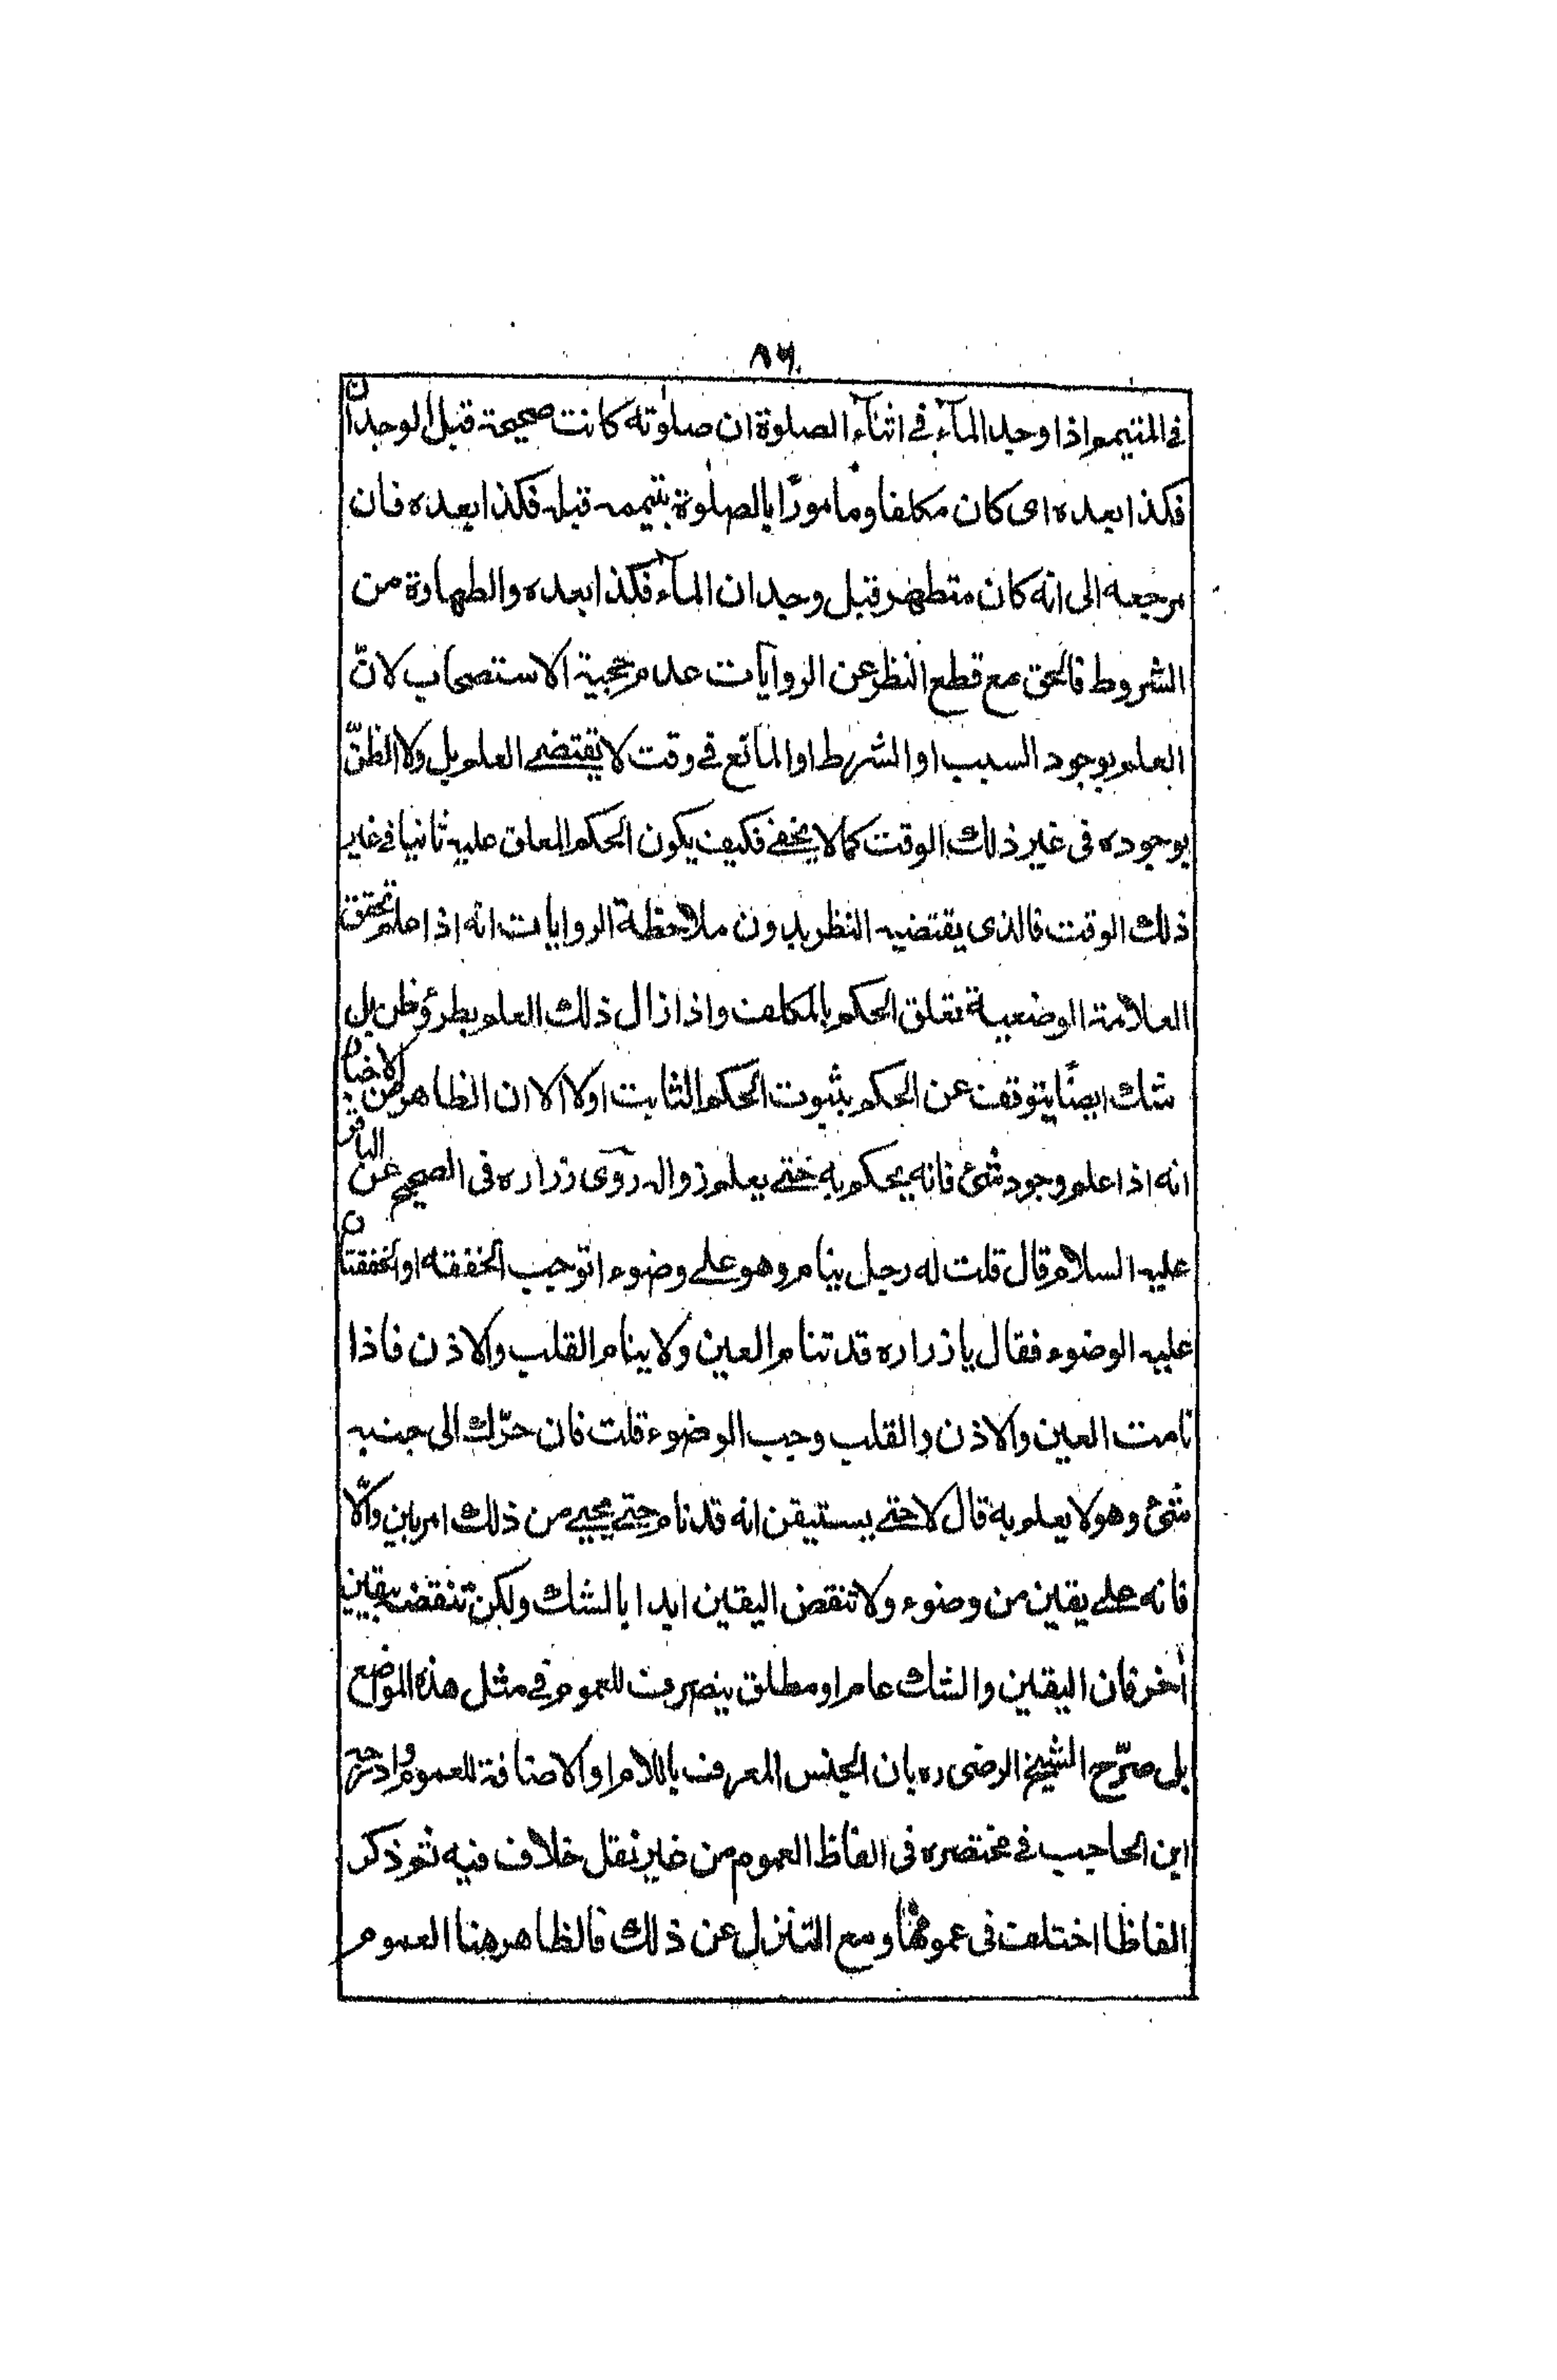 ٨٦
في المتيمم اذا وجد المآء في اثنآء الصلوة ان صلوته كانت صحيحة قبل الوجدان
فكذا بعده اى كان مكلفا ومامورًا بالصلوة بتيممه قبله فكذا بعده فان
مرجعه الى انه كان متطهر قبل وجدان المآء فكذا بعده والطهارة من
الشروط فالحق مع قطع النظر عن الروايات عدم حجية الاستصحاب لانّ
العلم بوجود السبب او الشرط او المانع في وقت لا يقتضے العلم بل ولا الظنّ
بوجوده فى غير ذلك الوقت كما لا يخفے فكيف يكون الحكم المعلق عليه ثانيا فے غير
ذلك الوقت فالذى يقتضيه النظر بدون ملاحظة الروايات انه اذا علم تحقق
العلامة الوضعية تعلق الحكم بالمكلف واذا زال ذلك العلم بطرؤ ظن بل
شك ايضًا يتوقف عن الحكم بثبوت الحكم الثابت اولا الا ان الظاهر من الاخبار
انه اذا علم وجود شئ فانه يحكم به حتے يعلم زواله روى زراره فى الصحيح عن الباقر
عليه السلام قال قلت له رجل ينام وهو علے وضوء اتوجب الخفقه او الخفقتان
عليه الوضوء فقال يا زراره قد تنام العين ولا ينام القلب والاذن فاذا
نامت العين والاذن والقلب وجب الوضوء قلت فان حرّك الى جنبه
شئ وهو لا يعلم به قال لا حتے يستيقن انه قد نام حتے يجيے من ذلك امر باين والّا
فانه علے يقين من وضوء ولا تنقض اليقين ابدا بالشك ولكن تنقضه بيقين
أخر فان اليقين والشك عام او مطلق ينصرف للعموم في مثل هذه المواضع
بل صرّح الشيخ الرضى ره بان الجنس المعرف باللام او الاضافة للعموم وادرجه
ابن الحاجب في مختصره فى الفاظ العموم من غير نقل خلاف فيه ثم ذكر
الفاظا اختلف فى عمومها ومع التنزل عن ذلك فالظاهر هنا العموم